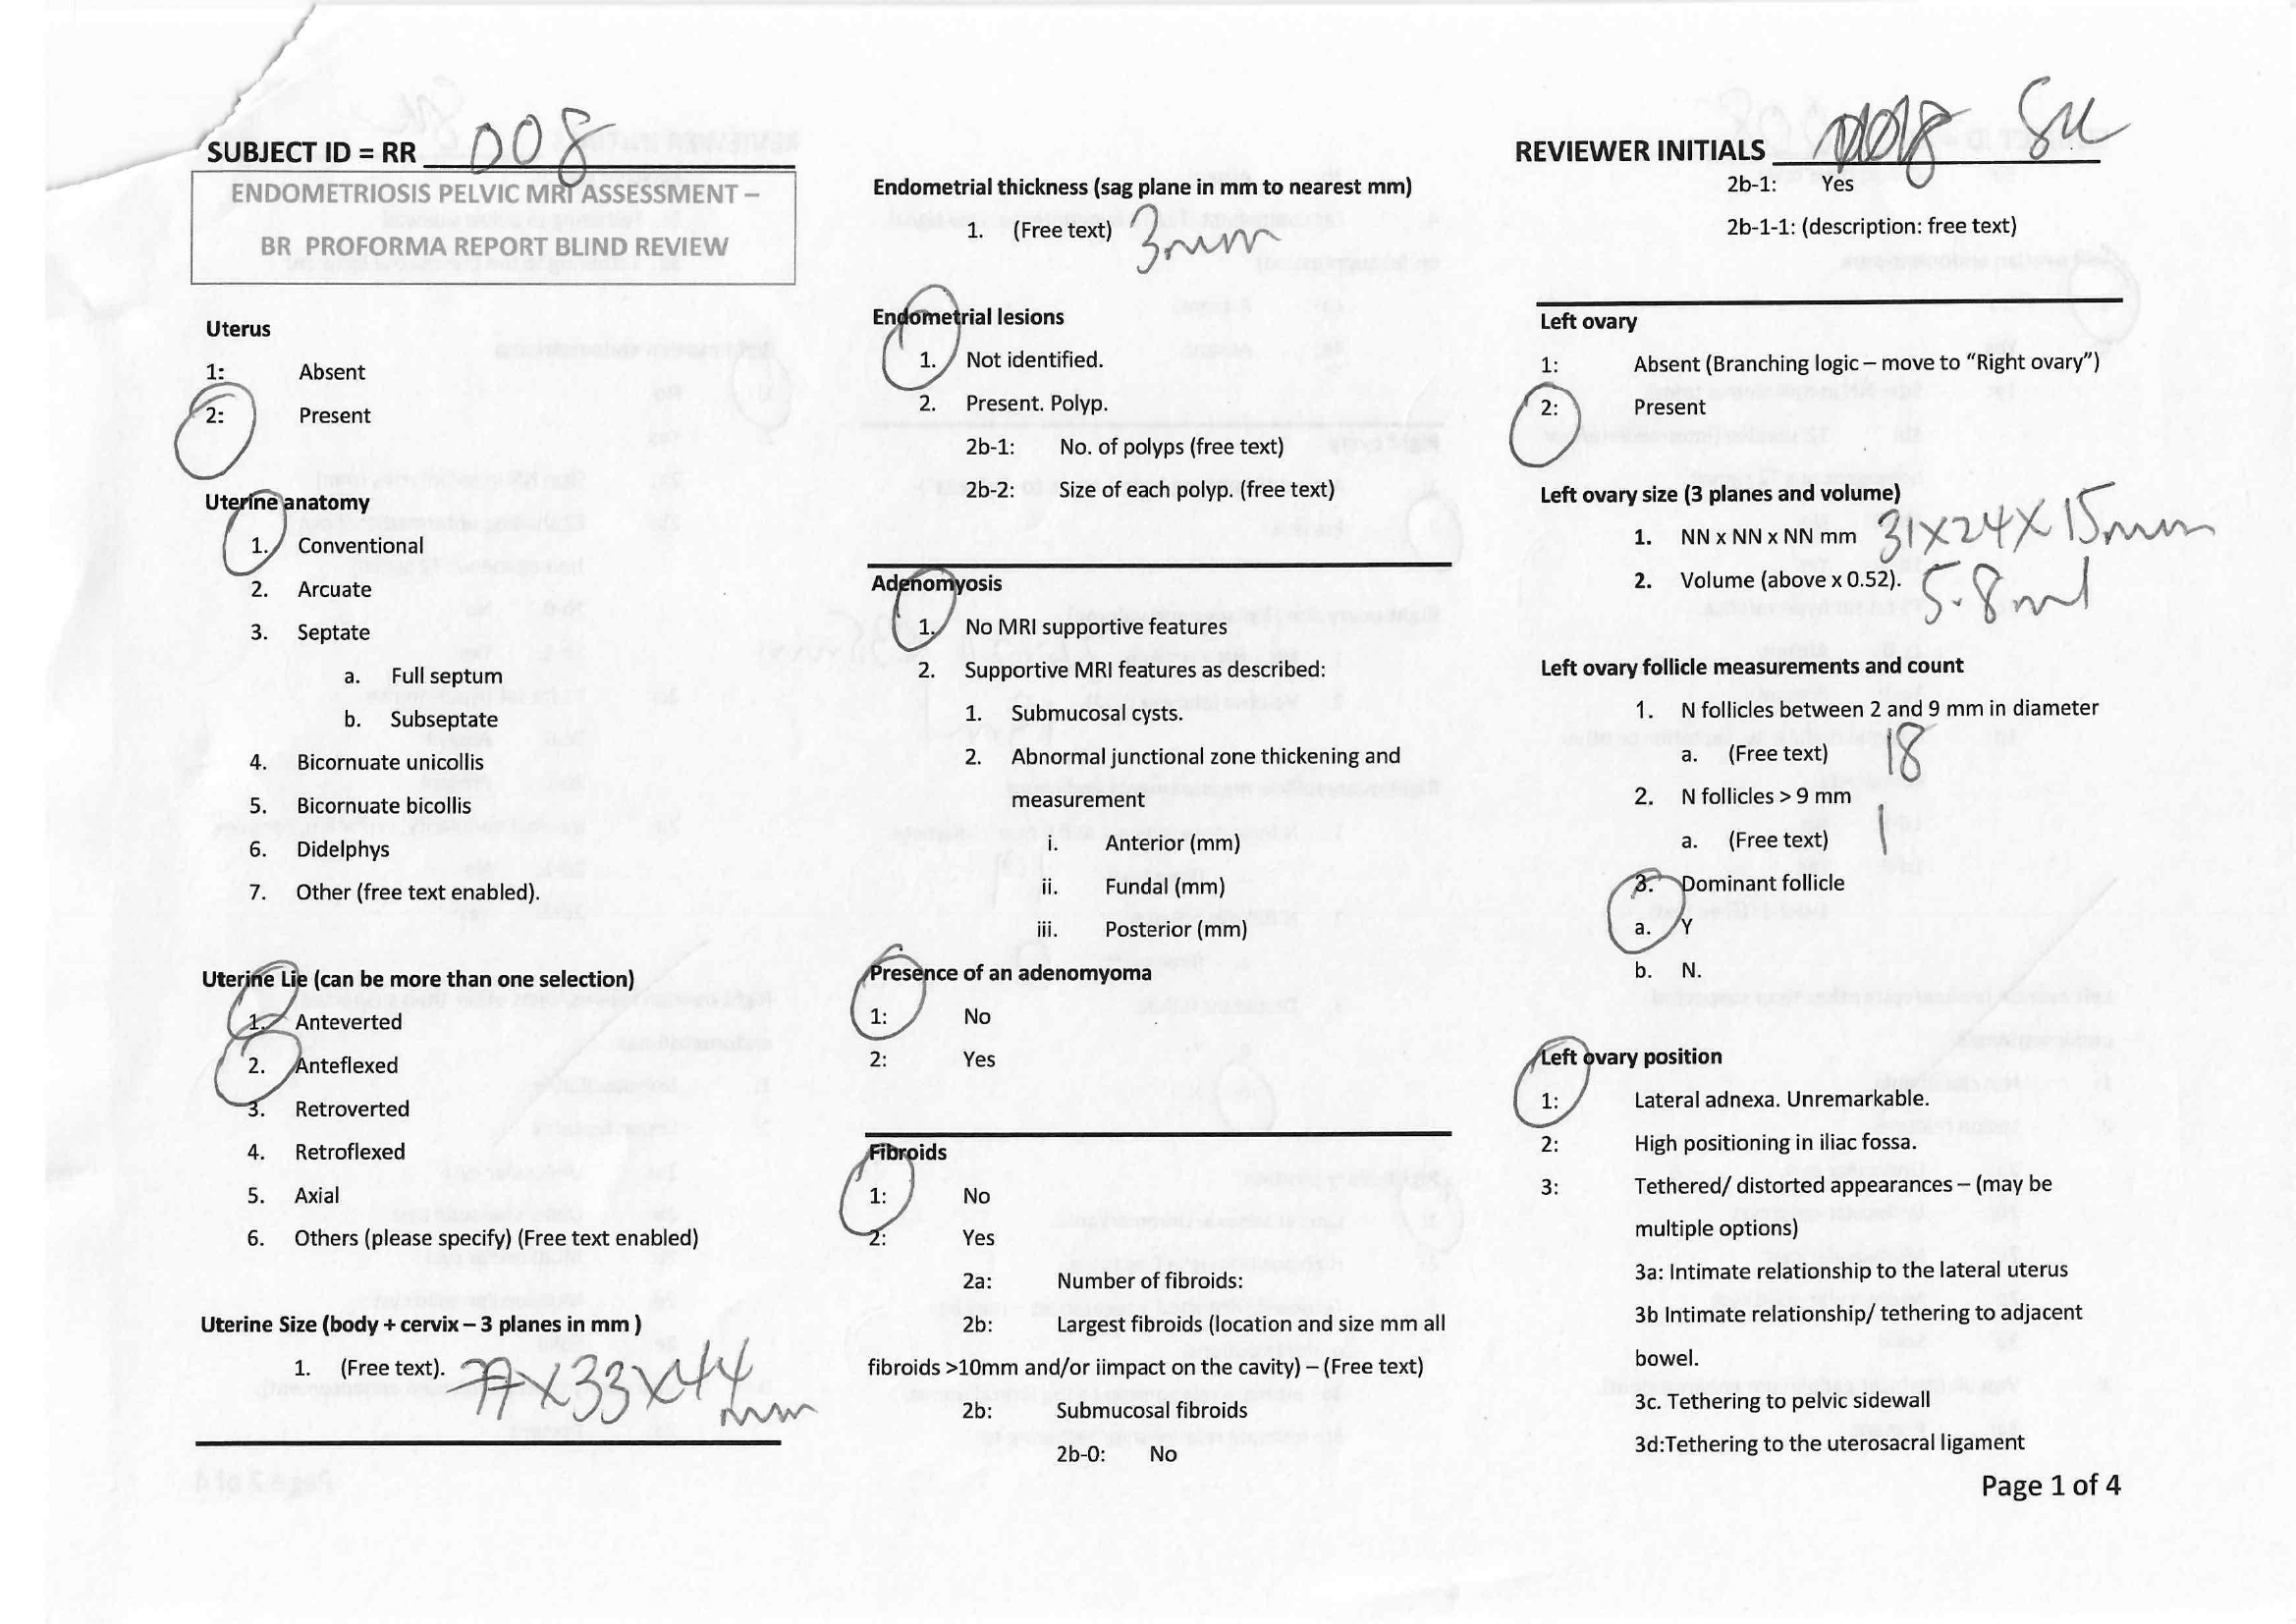 SUBJECT ID = RR 008
ENDOMETRIOSIS PELVIC MRI ASSESSMENT –
BR PROFORMA REPORT BLIND REVIEW
Uterus
1: Absent
2: Present
Uterine anatomy
1. Conventional
2. Arcuate
3. Septate
a. Full septum
b. Subseptate
4. Bicornuate unicollis
5. Bicornuate bicollis
6. Didelphys
7. Other (free text enabled).
Uterine Lie (can be more than one selection)
1. Anteverted
2. Anteflexed
3. Retroverted
4. Retroflexed
5. Axial
6. Others (please specify) (Free text enabled)
Uterine Size (body + cervix – 3 planes in mm )
1. (Free text). 77x33x44
mm
Endometrial thickness (sag plane in mm to nearest mm)
1. (Free text) 3mm
Endometrial lesions
1. Not identified.
2. Present. Polyp.
2b-1: No. of polyps (free text)
2b-2: Size of each polyp. (free text)
Adenomyosis
1. No MRI supportive features
2. Supportive MRI features as described:
1. Submucosal cysts.
2. Abnormal junctional zone thickening and
measurement
i. Anterior (mm)
ii. Fundal (mm)
iii. Posterior (mm)
Presence of an adenomyoma
1: No
2: Yes
Fibroids
1: No
2: Yes
2a: Number of fibroids:
2b: Largest fibroids (location and size mm all
fibroids >10mm and/or iimpact on the cavity) – (Free text)
2b: Submucosal fibroids
2b-0: No
REVIEWER INITIALS
2b-1: Yes
2b-1-1: (description: free text)
Left ovary
1: Absent (Branching logic – move to “Right ovary”)
2: Present
Left ovary size (3 planes and volume)
1. NN x NN x NN mm 31x24x15mm
2. Volume (above x 0.52). 5.8ml
Left ovary follicle measurements and count
1. N follicles between 2 and 9 mm in diameter
a. (Free text) 18
2. N follicles > 9 mm
a. (Free text) 1
3. Dominant follicle
a. Y
b. N.
Left ovary position
1: Lateral adnexa. Unremarkable.
2: High positioning in iliac fossa.
3: Tethered/ distorted appearances – (may be
multiple options)
3a: Intimate relationship to the lateral uterus
3b Intimate relationship/ tethering to adjacent
bowel.
3c. Tethering to pelvic sidewall
3d:Tethering to the uterosacral ligament
Page 1 of 4